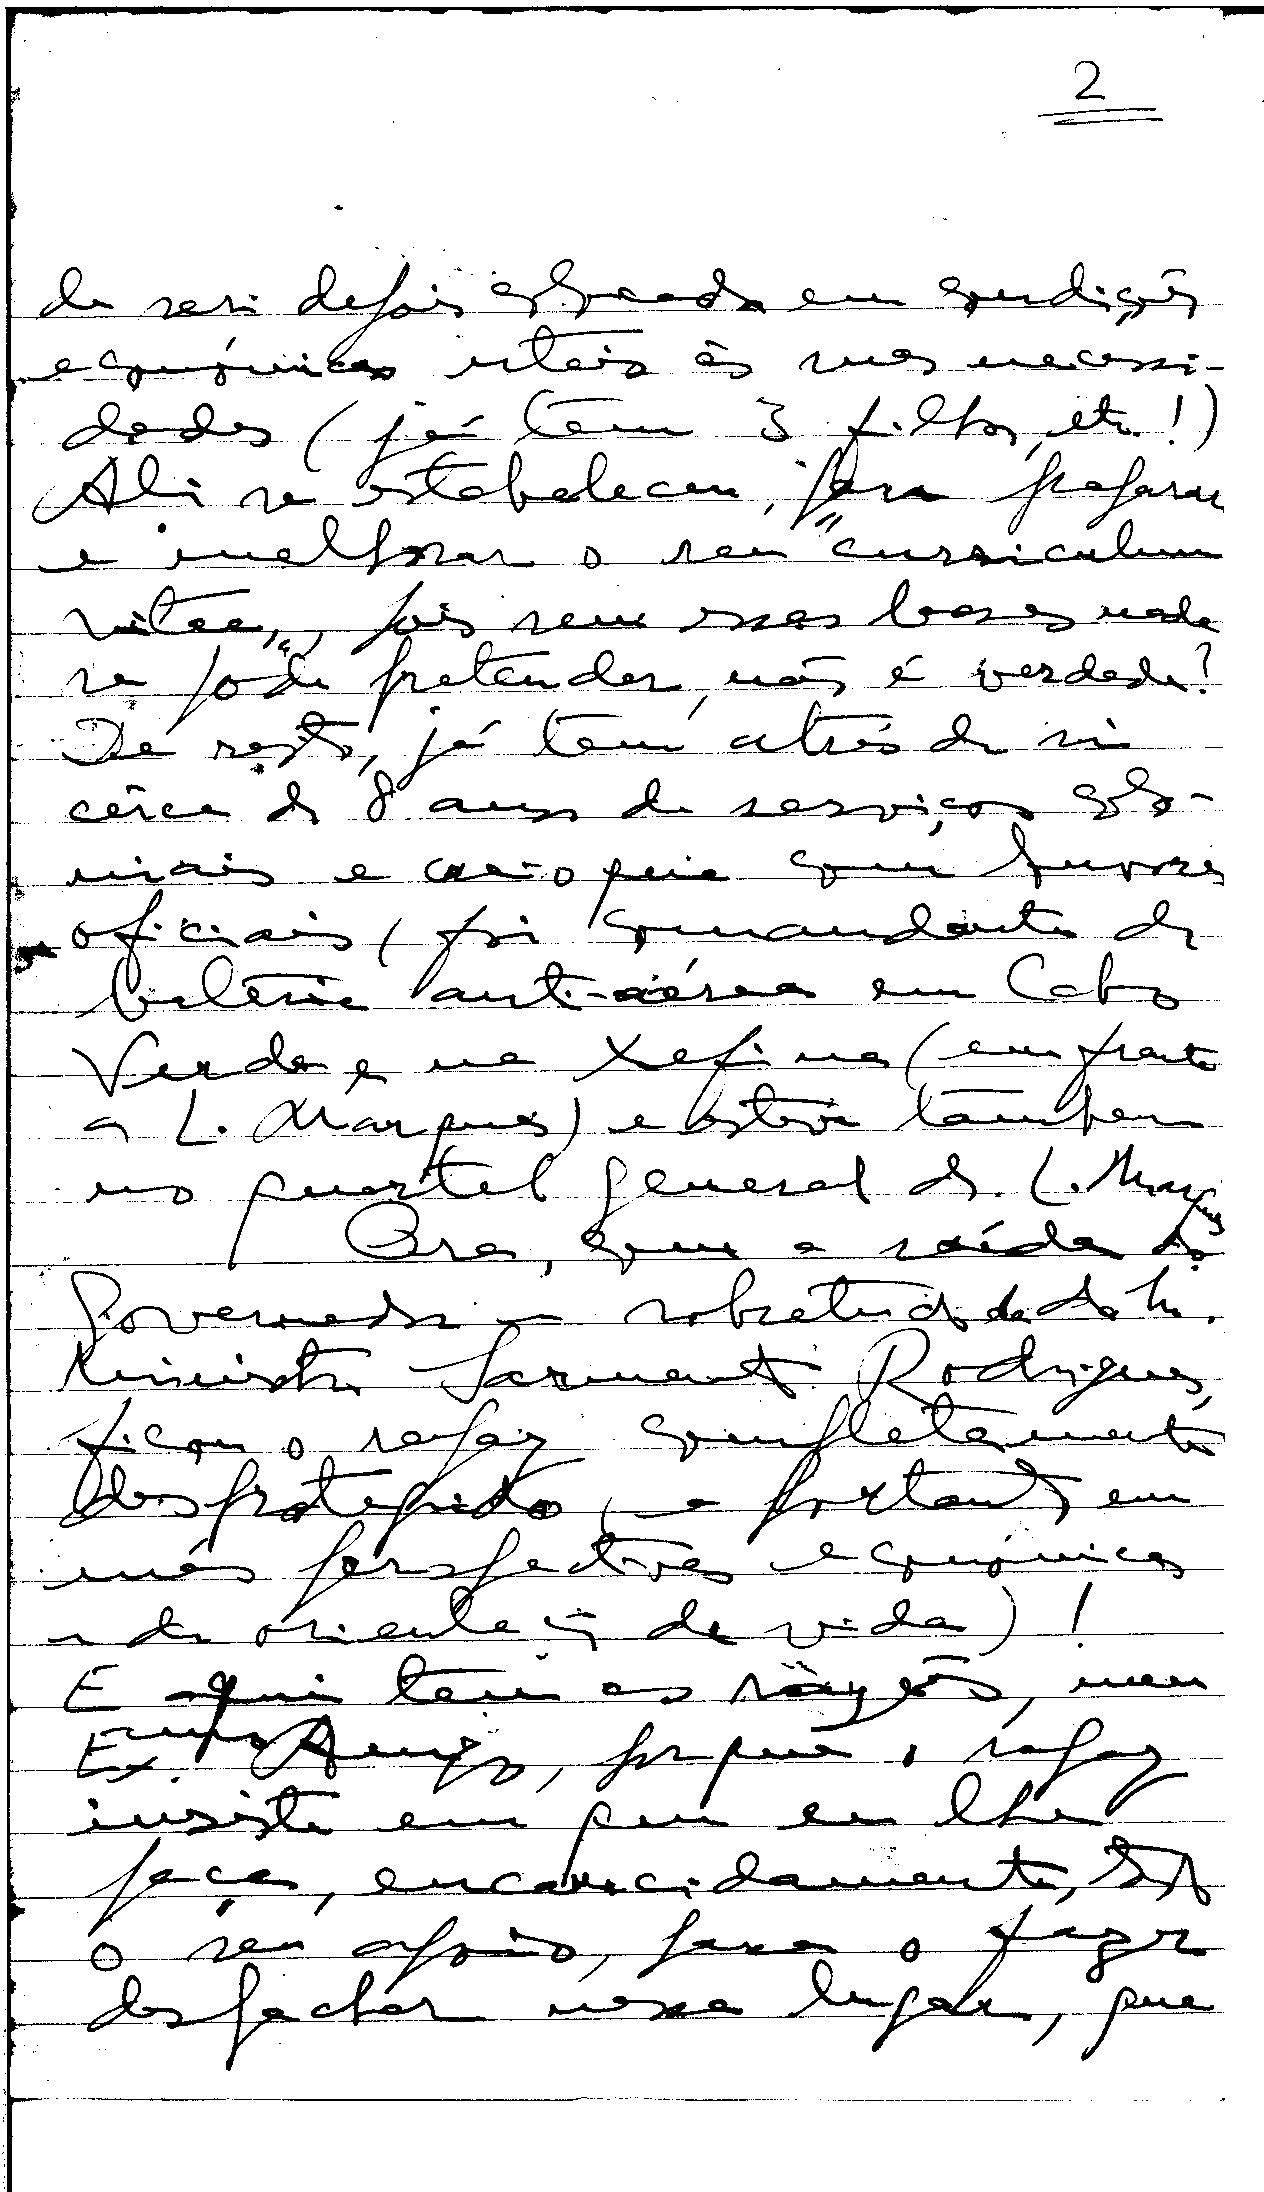 2
de ser depois colocado em condições
económicas uteis ás suas necessi-
dades (já tem 3 filhos, etc!)
Ali se estabeleceu, para preparar
e melhorar o seu "curriculum
vitae", pois sem essas bases nada
se pode pretender, não é verdade?
De resto, já tem atrás de si
cêrca de 8 anos de serviços colo-
niais e creio que com louvores
oficiais (foi comandante de
bateria anti-aérea em Cabo
Verde e na Xefina (em frente
a L. Marques) e esteve tambem
no quartel general de L. Marques
Ora, com a saída do
Governador e sobretudo da do
Ministro Sarmento Rodrigues,
ficou o rapaz completamente
desprotegido (e portanto em
más perspectivas económicas
e de orientação de vida)!
E aqui tem as razões, meu
Exmo Amigo, porque o rapaz
insiste em que eu lhe
peça, encarecidamente,
o seu apoio, para o fazer
despachar nesse lugar, que